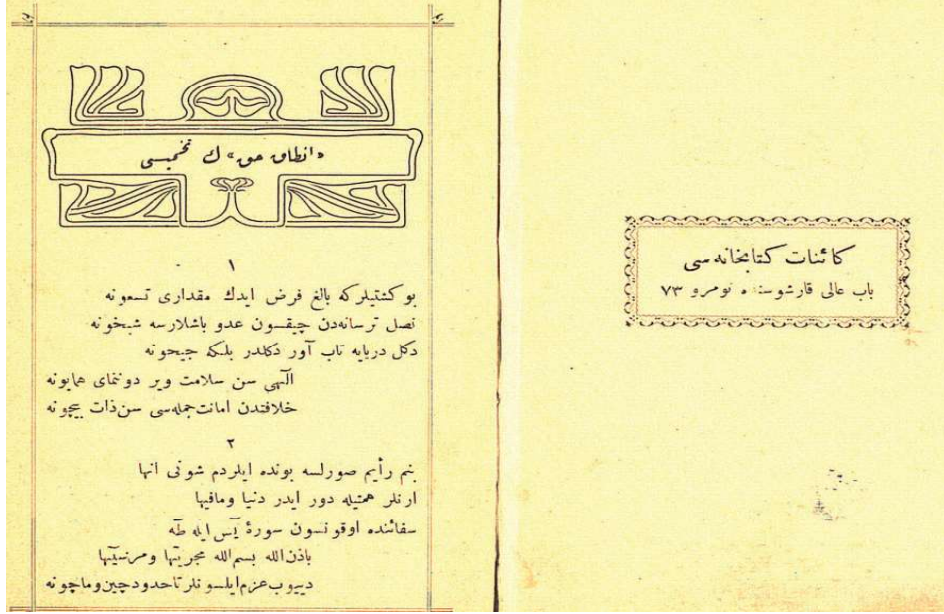 كائنات كتابخانه‌سی
باب عالی قارشوسنده نومرو ۷۳
«انطاق حق» ك تخمیسی
۱
بو كشتیلركه بالغ فرض ایدك مقداری تسعونه
نصل ترسانه‌دن چیقسون عدو باشلارسه شبخونه
دكل دریایه تاب آور دكلدر بلكه جیحونه
الٓهی سن سلامت ویر دوننمای همایونه
خلافتدن امانت جمله‌سی سن ذات بیچونه
۲
بنم رأیم صورلسه بونده ایلردم شونی انها
ارنلر همتیله دور ایدر دنیا ومافیها
سفائنده اوقونسون سورهٔ یٓس ایله طٓه
باذن الله بسم الله مجریٰها ومرسیٰها
دییوب عزم ایلسونلر تا حدود چین وماچونه